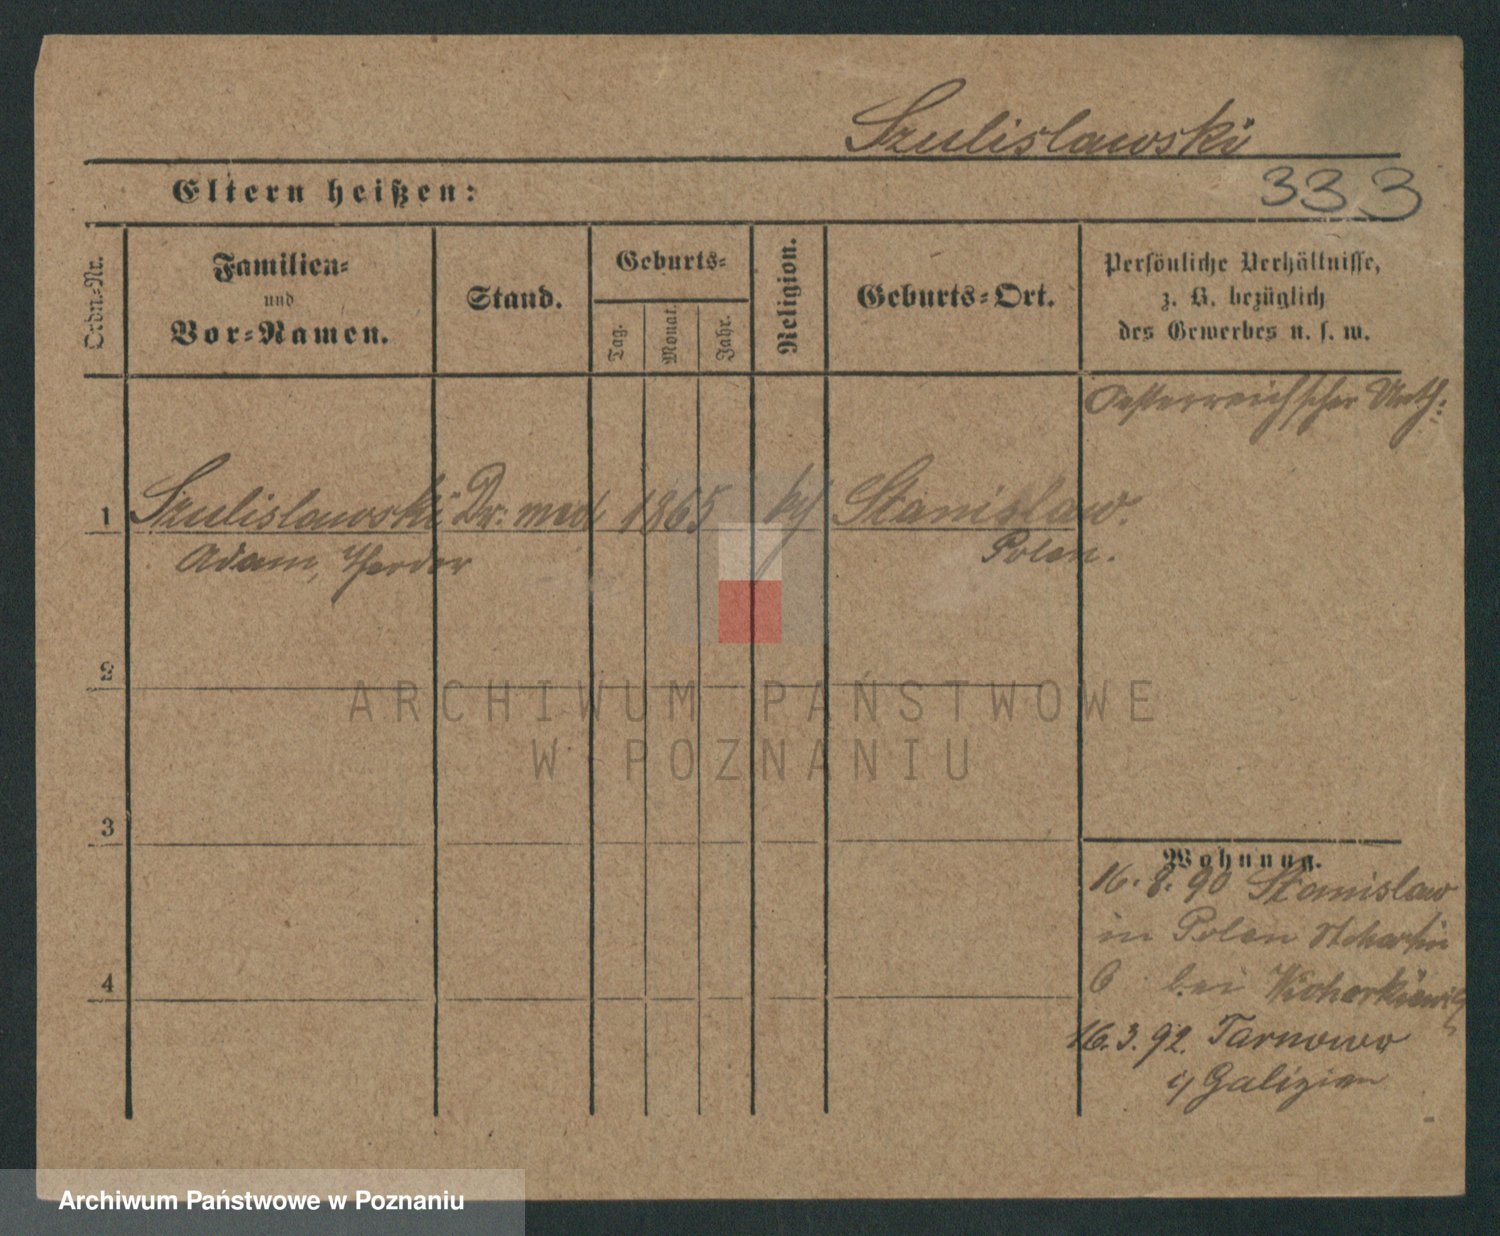 Szulislawski
Eltern heißen:
333
Ordn.-Nr.
Familien-
und
Vor-Namen.
Stand.
Geburts-
Tag.
Monat.
Jahr.
Religion.
Geburts-Ort.
Persönliche Verhältnisse,
z. B. bezüglich
des Gewerbes u. s. w.
Oesterreichscher Unth:
1 Szulislawski Dr: med 1865 Stanislaw.
Adam, Polen.
2
3
4
Wohnung.
16. 8. 90 Stanislaw
in Polen
6 bei
16. 3. 92. Tarnowo
i/ Galizien
ARCHIWUM PAŃSTWOWE
W POZNANIU
Archiwum Państwowe w Poznaniu